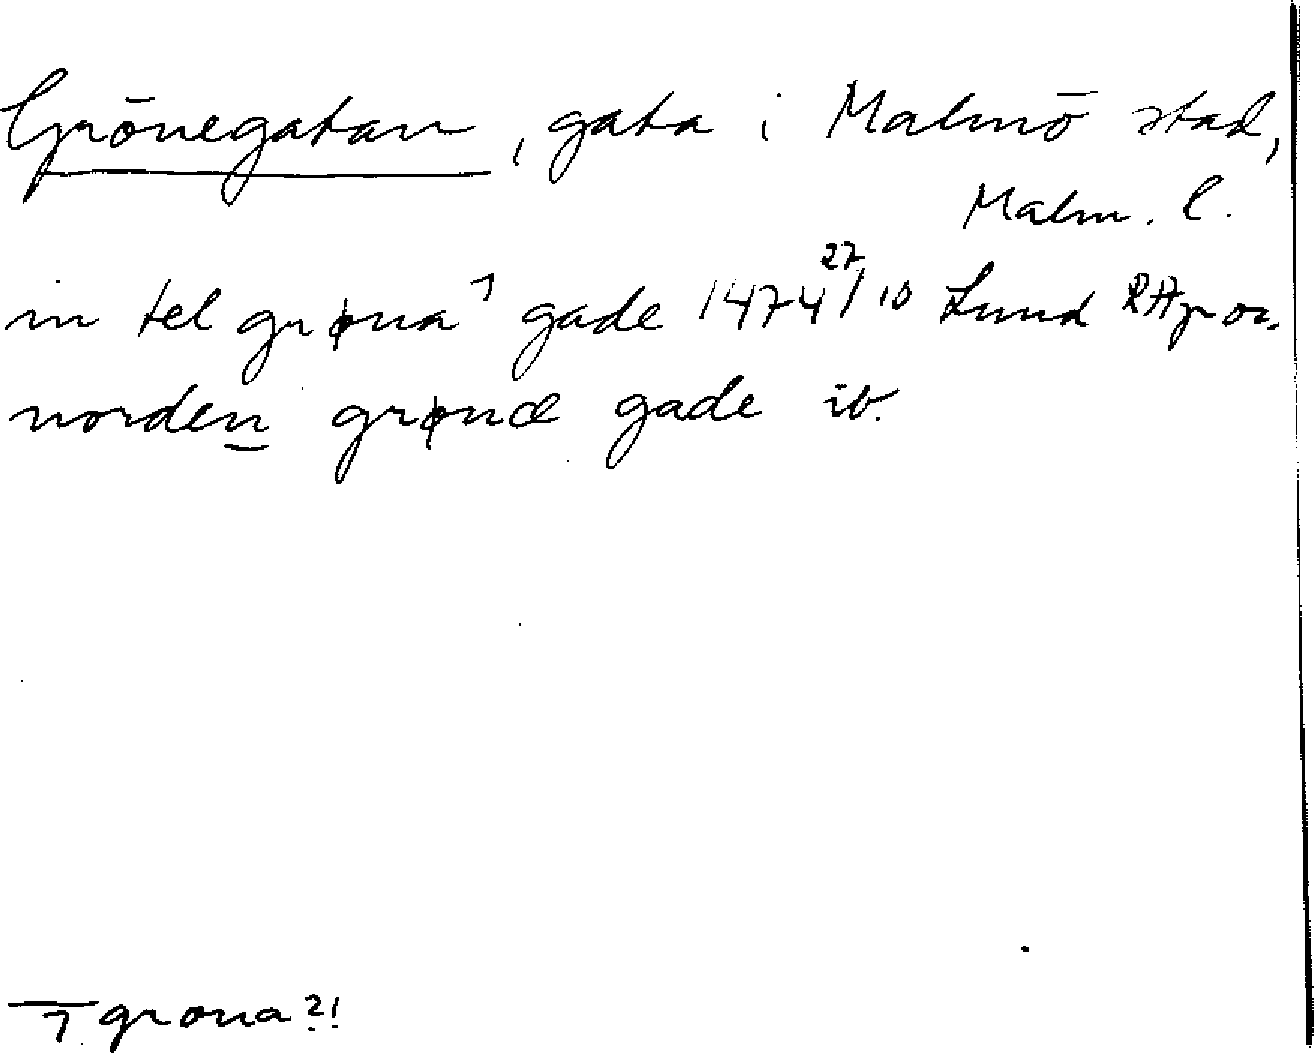 Grönegatan, gata i Malmö stad,
Malm. l.
in tel grøna ⁊ gade 1474 27/10 Lund RApor.
norden grønæ gade ib.
⁊ grona?!